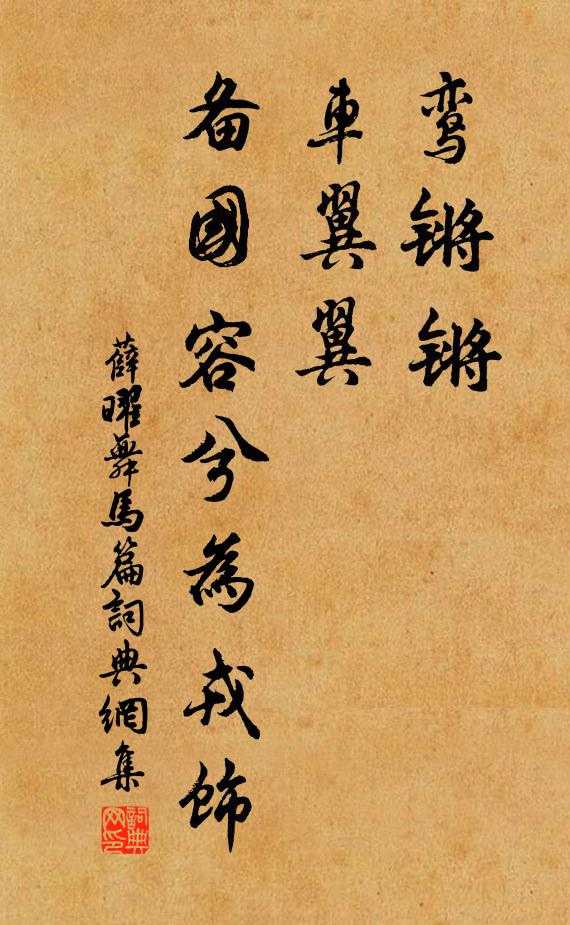 鸾锵锵
車翼翼
备國容兮為戎飾
薛曜舞馬篇詞典網集
詞典网印